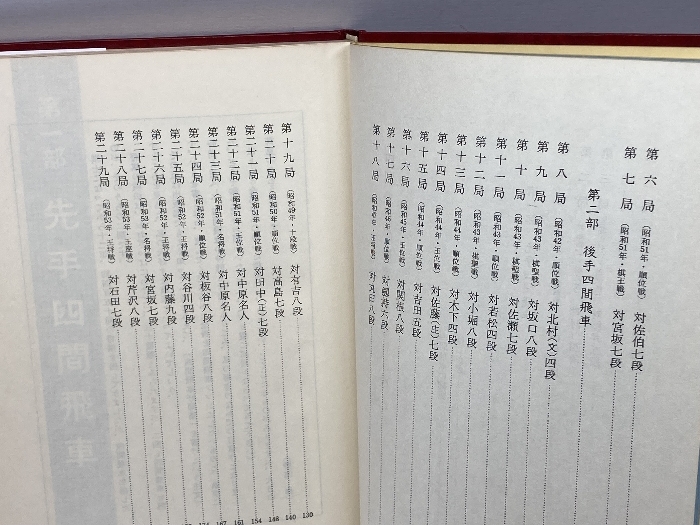 第六局 (昭和51年・順位戦) 対佐伯七段
第七局 (昭和51年・棋王戦) 対宮坂七段
第二部 後手四間飛車
第八局 (昭和42年・順位戦) 対北村(文)四段
第九局 (昭和43年・棋聖戦) 対坂口八段
第十局 (昭和43年・棋聖戦) 対佐瀬七段
第十一局 (昭和43年・順位戦) 対若松四段
第十二局 (昭和43年・棋聖戦) 対小堀八段
第十三局 (昭和44年・順位戦) 対木下四段
第十四局 (昭和44年・王位戦) 対佐藤(庄)七段
第十五局 (昭和44年・順位戦) 対吉田五段
第十六局 (昭和45年・王位戦) 対関根八段
第十七局 (昭和46年・順位戦) 対 六段
第十八局 (昭和47年・王将戦) 対丸田八段
第十九局 (昭和49年・十段戦) 対有吉八段
第二十局 (昭和50年・順位戦) 対高島七段
第二十一局 (昭和51年・順位戦) 対田中(正)七段
第二十二局 (昭和51年・王位戦) 対中原名人
第二十三局 (昭和51年・王将戦) 対中原名人
第二十四局 (昭和52年・順位戦) 対板谷八段
第二十五局 (昭和52年・王将戦) 対谷川四段
第二十六局 (昭和52年・王将戦) 対内藤九段
第二十七局 (昭和53年・名将戦) 対宮坂七段
第二十八局 (昭和53年・王座戦) 対芹沢八段
第二十九局 (昭和53年・王将戦) 対石田七段
130
140
148
154
161
167
174
先手四間飛車